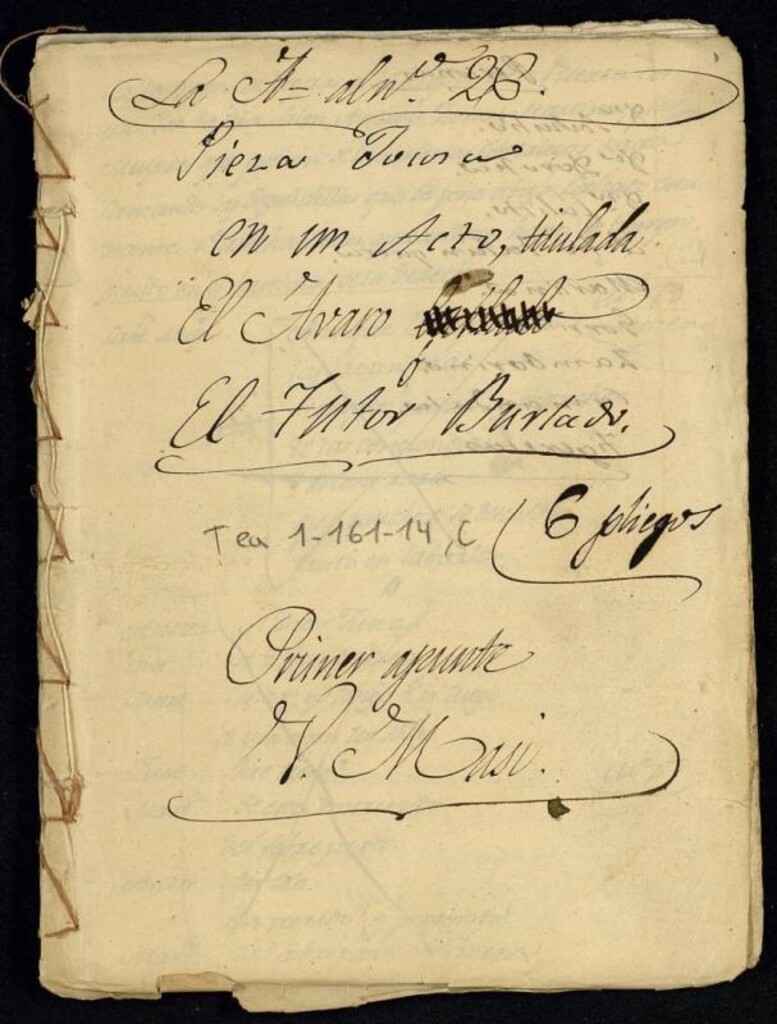 La A= al nº. 26.
Pieza Jocosa
en un Acto, titulada
El Avaro
ó
El Tutor Burlado.
Tea 1-161-14, C
6 pliegos
Primer apunte
V. Masi.